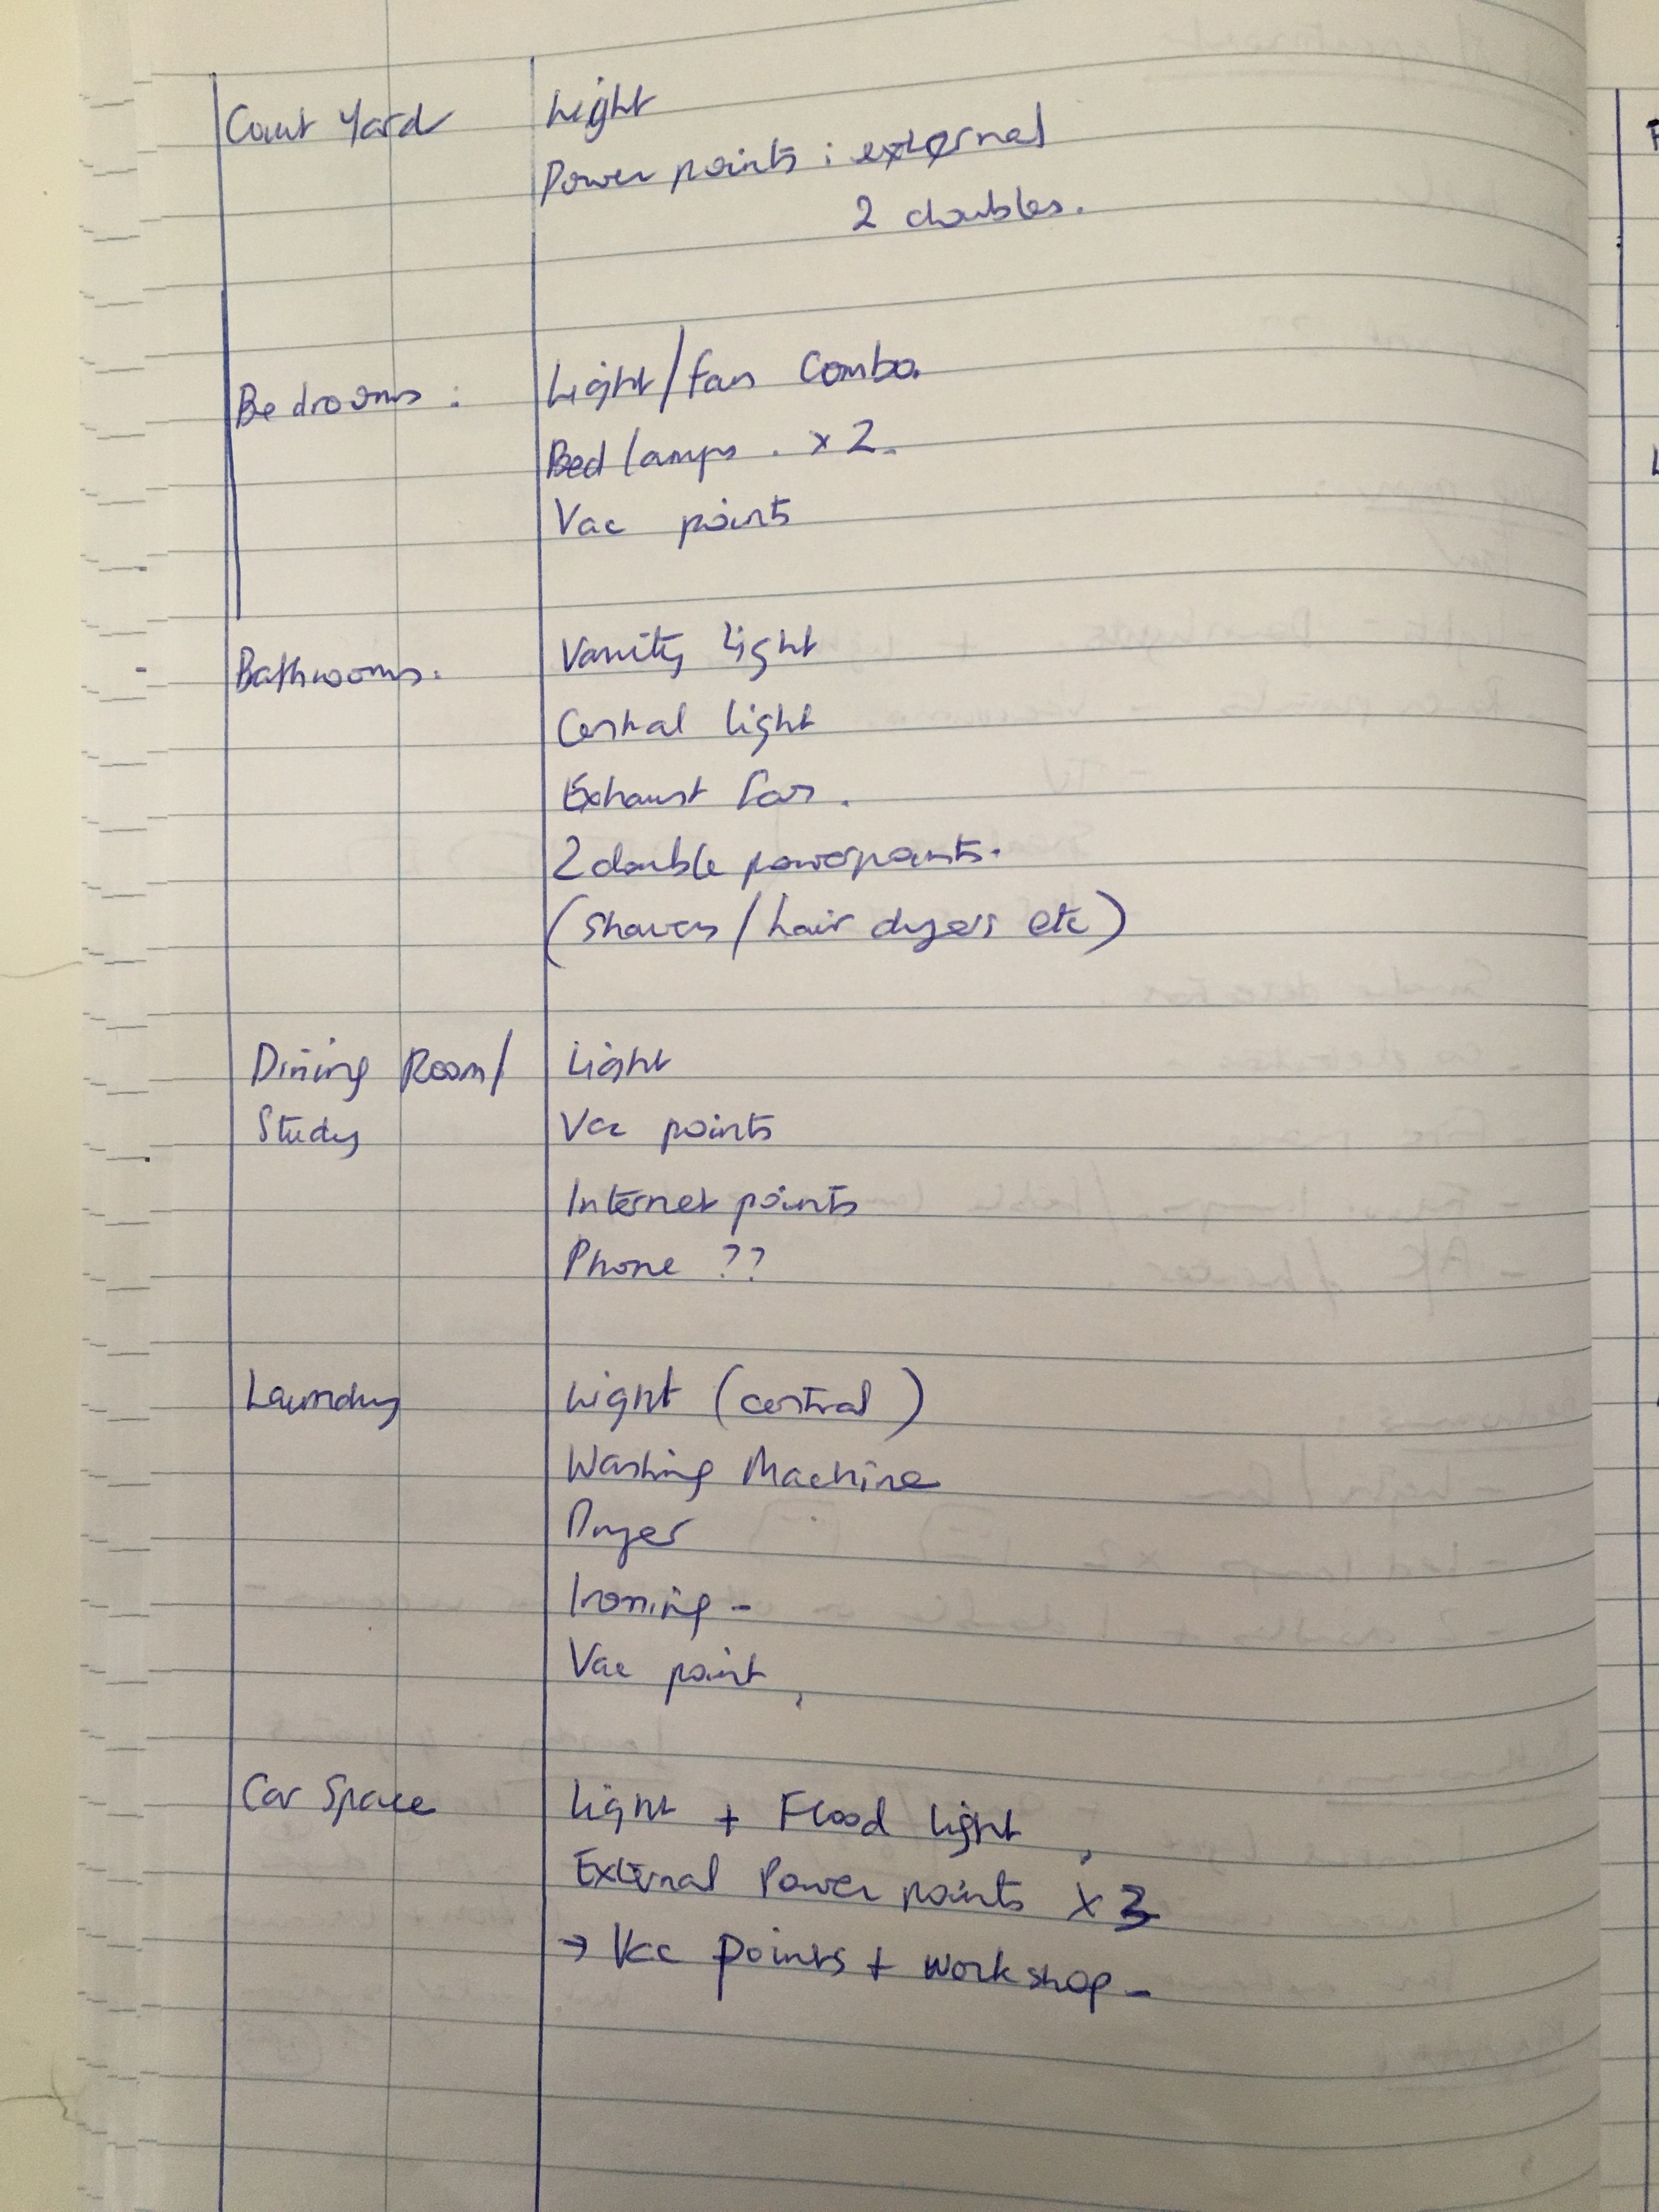 Court Yard
Light
Power points : external
2 doubles.
Bedrooms :
Light/fan Combo.
Bed lamps . x 2.
Vac points
Bathrooms.
Vanity light
Central light
Exhaust fan.
2 double powerpoints.
(Shavers / hair dryers etc)
Dining Room/
Study
Light
Vac points
Internet points
Phone ??
Laundry
Light (central)
Washing Machine
Dryer
Ironing -
Vac point,
Car Space
Light + Flood light,
External Power points x 3
→ Vac points + workshop -